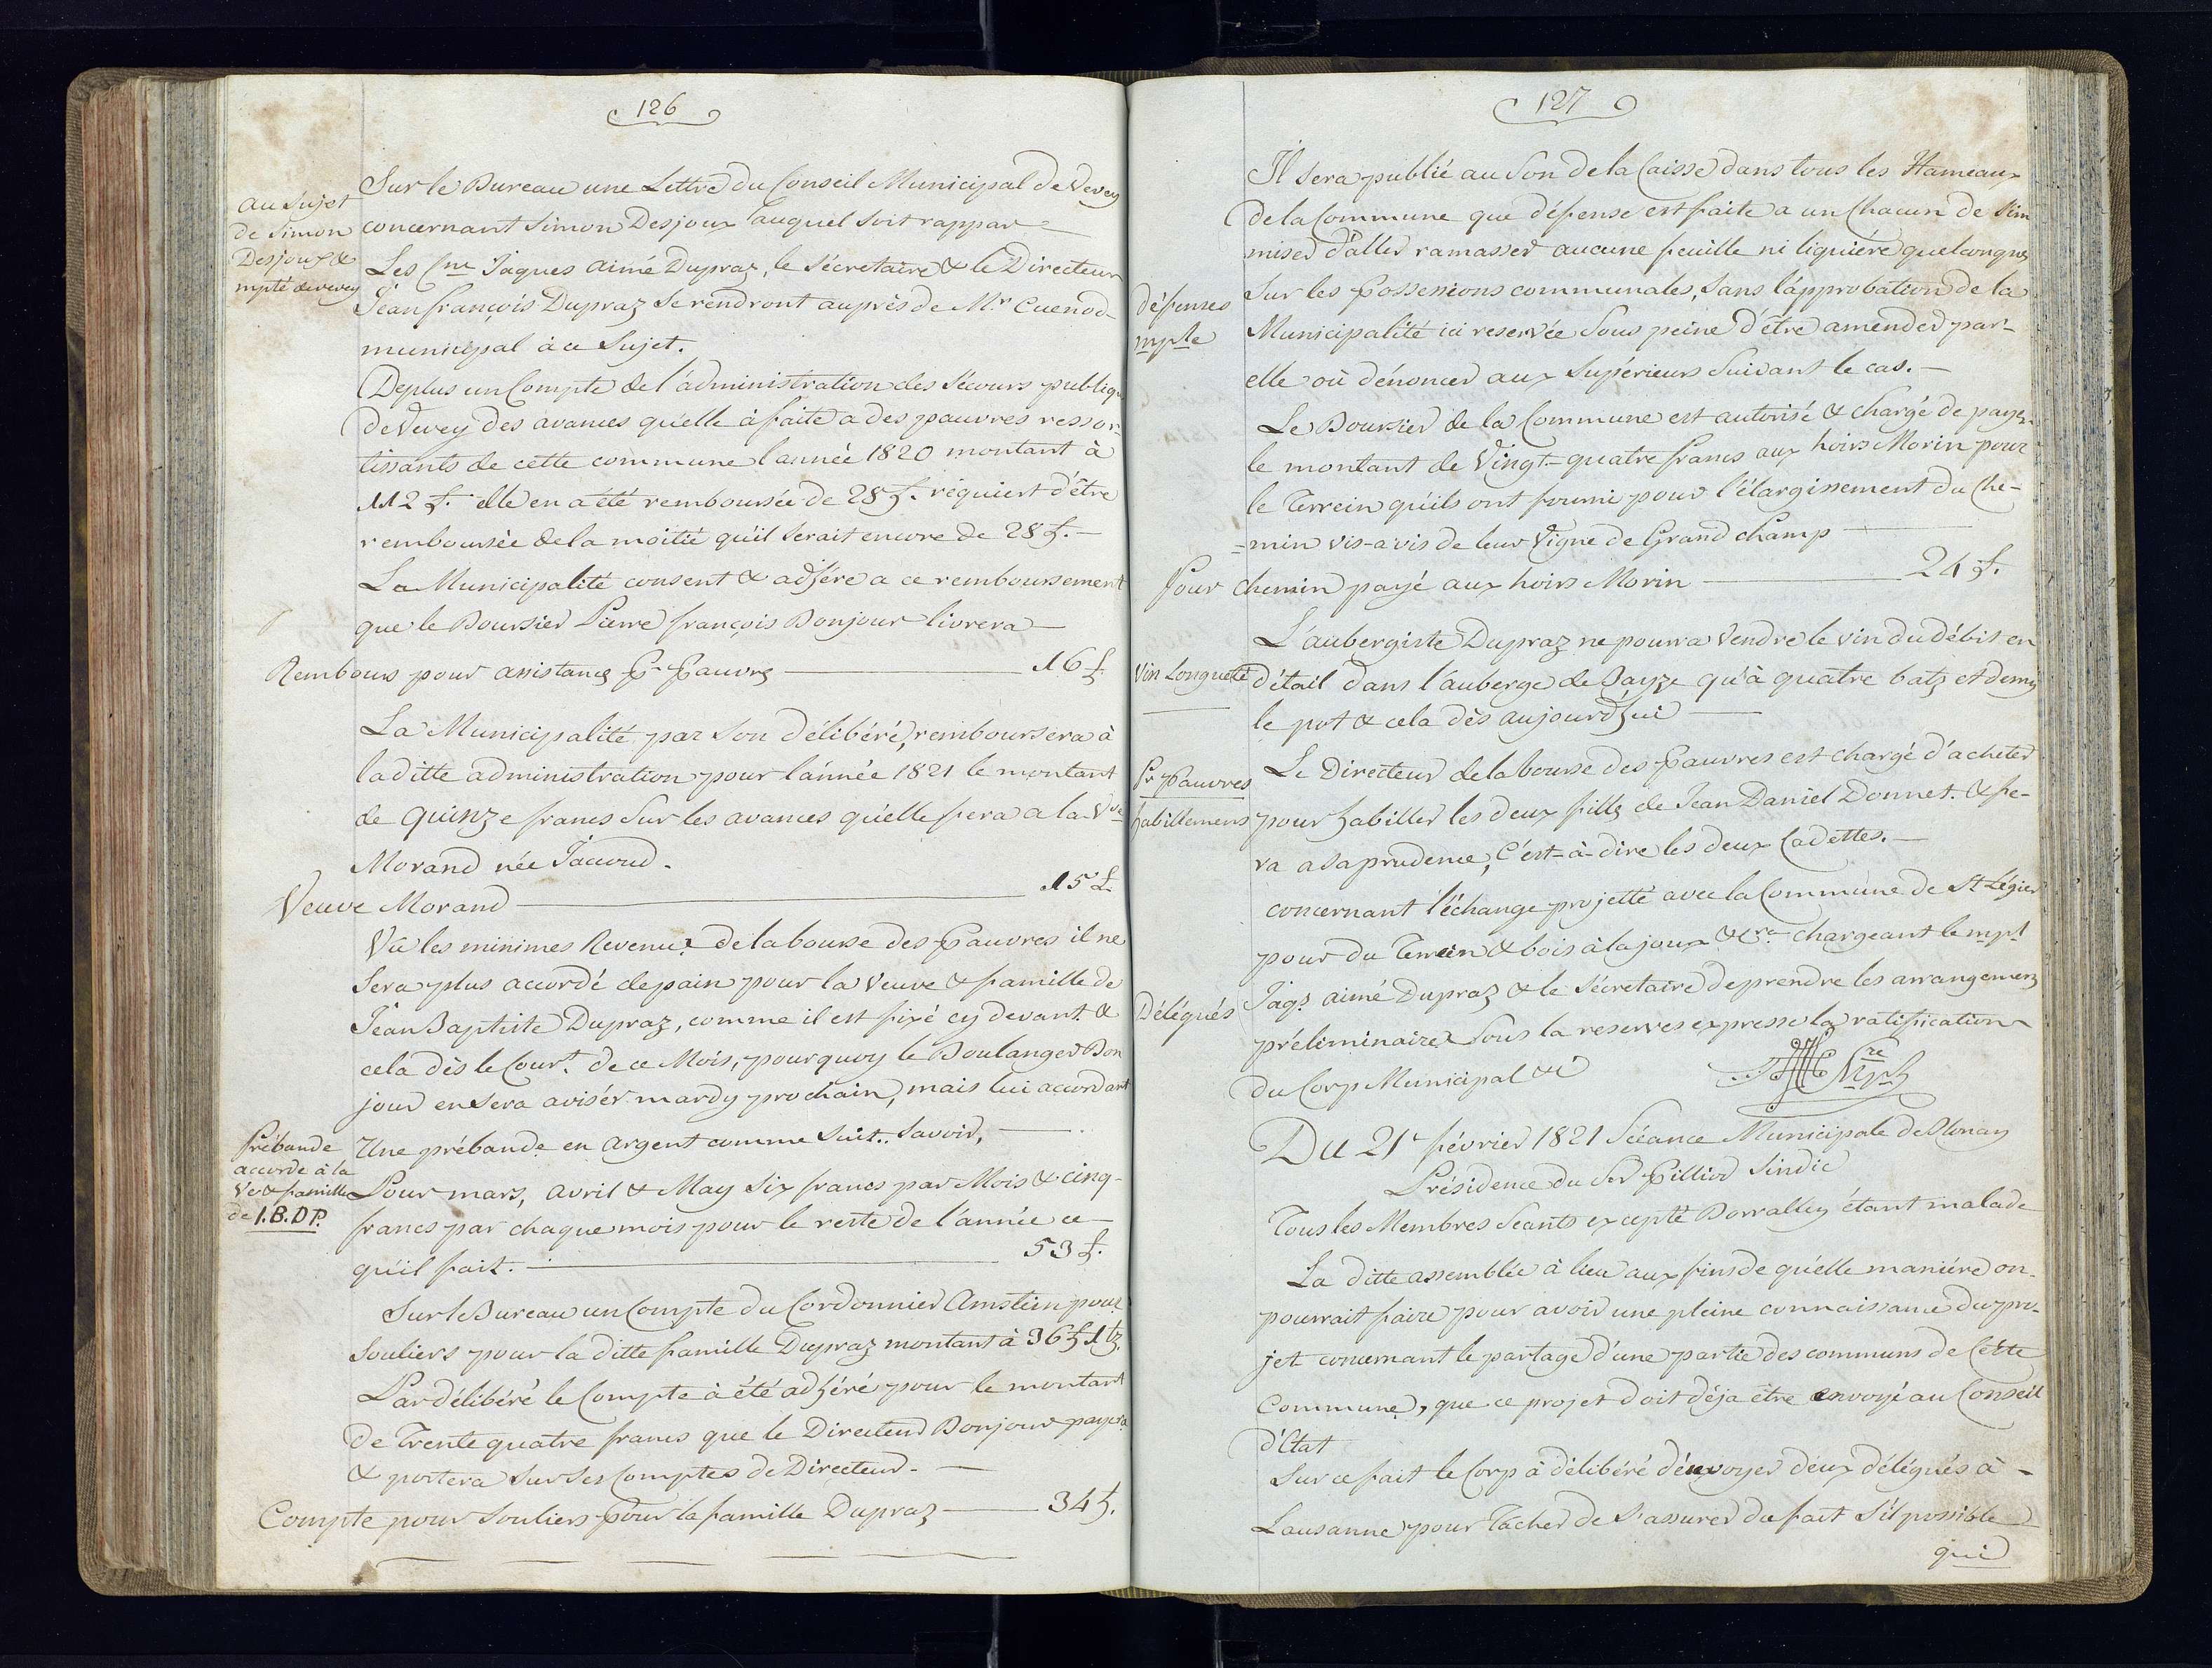 126
Sur le Bureau une Lettre du Conseil Municipal de Vevey
au Sujet
de Simon
Desjoux &
mpté de vevey
concernant Simon Desjoux auquel soit rappar
Les Cne Jâques aimé Dupraz, le Sécretaire & le Directeur
Jean françois Dupraz Se rendront auprès de Mr. Cuenod
municipal à ce Sujet.
Deplus un Compte de l'administration des Sécours publiqu
de Vevey des avances qu'elle à faite a des pauvres ressor-
tissants de cette commune l'année 1820 montant à
112 f. elle en a été remboursée de 28 f. réquiert d'être
remboursée de la moitié qu'il serait encore de 28 f. —
La Municipalité consent & adhére a ce remboursement
que le Boursier Pierre françois Bonjour livrera —
Rembours pour assistance pr. Pauvres — 16 f.
La Municipalité par Son délibéré, remboursera à
laditte administration pour l'année 1821 le montant
de quinze francs Sur les avances qu'elle fera a la Vve
Morand née Jaccoud.
Veuve Morand — 15 f.
Vû les minimes Revenus de la bourse des Pauvres il ne
Sera plus accordé de pain pour la Veuve & famille de
Jean Baptiste Dupraz, comme il est fixé cy devant &
cela dès le Court. de ce Mois, pourquoy le Boulanger Bon
jour en Sera avisér mardy prochain, mais lui accordant
Prébande
accorde à la
Ve & famille
de J.B.DP.
Une prébande en argent comme Suit.. Savoir, —
Pour mars, avril & May Six francs par Mois & cinq-
francs par chaque mois pour le reste de l'année ce
qu'il fait. — 53 f.
Sur le Bureau un Compte du Cordonnier Amstein pour
Souliers pour la ditte famille Dupraz montant à 36 f 1 bz.
Par délibéré le Compte à été adhéré pour le montant
de Trente quatre francs que le Directeur Bonjour payera
& portera Sur Ses Comptes de Directeur. —
Compte pour Souliers pour la famille Dupraz — 34 f.
127
Il sera publié au Son de la Caisse dans tous les Hameaux
de la Commune que défense est faite a un Chacun de Sim
miser d'aller ramasser aucune feuille ni liquiére quelconques
défenses
mple
Sur les Possessions communales, Sans l'approbation de la
Municipalité ici reservée Sous peine d'être amender par-
elle où dénoncer aux Supérieurs Suivant le cas. —
Le Boursier de la Commune est autorisé & chargé de payer
le montant de Vingt-quatre francs aux hoirs Morin pour
le Terrein qu'ils ont fourni pour l'élargissement du Che-
=min vis-a-vis de leur Vigne de Grand champ —
Pour chemin payé aux hoirs Morin — 24 f.
L'aubergiste Dupraz ne pourra Vendre le vin du débit en
Vin Longuette
détail dans l'auberge de Bayze qu'à quatre batz et demi
le pot & cela dès aujourd'hui —
Pr Pauvres
habillemens
Le Directeur de la bourse des Pauvres est chargé d'acheter
pour habiller les deux filles de Jean Daniel Donnet. & fe-
ra a sa prudence, C'est-à-dire les deux Cadettes. —
concernant l'échange projetté avec la Commune de St Légier
pour du Terrein & bois à la joux &cra chargeant le mpl
Délégués
Jâqs aimé Dupraz & le Sécretaire de prendre les arrangemens
préliminaires Sous la reserves expresse la ratification
du Corp Municipal &c
Du 21e février 1821 Séance Municipale de Blonay
Présidence du Sr Pilliod Sindic
Tous les Membres Seants excepté Borralley étant malade
La ditte assemblée à lieu aux fins de qu'elle maniére on-
pourrait faire pour avoir une pleine connaissance du pro-
jet concernant le partage d'une partie des communs de Cette
Commune, que ce projet doit déja être envoyé au Conseil
d'Etat
Sur ce fait le Corp à délibéré d'envoyer deux délégués à -
Lausanne pour Tacher de S'assurer du fait S'il possible
qui